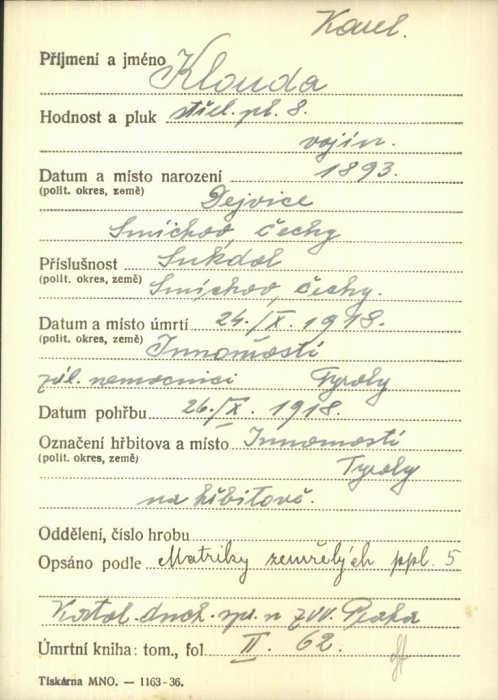 Karel.
Příjmení a jméno Klouda
Hodnost a pluk střel. pl. 8.
vojín.
Datum a místo narození 1893.
(polit. okres, země) Dejvice
Smíchov, Čechy
Příslušnost Sukdol
(polit. okres, země) Smíchov, Čechy.
Datum a místo úmrtí 24./X. 1918.
(polit. okres, země) Innomostí
zál. nemocnici Tyroly
Datum pohřbu 26./X. 1918.
Označení hřbitova a místo Innomostí
(polit. okres, země) Tyroly
na hřbitově.
Oddělení, číslo hrobu
Opsáno podle Matriky zemřelých ppl. 5
Katol. duch. spr. n ZVV. Praha
Úmrtní kniha: tom., fol. II. 62.
Tiskárna MNO. — 1163-36.